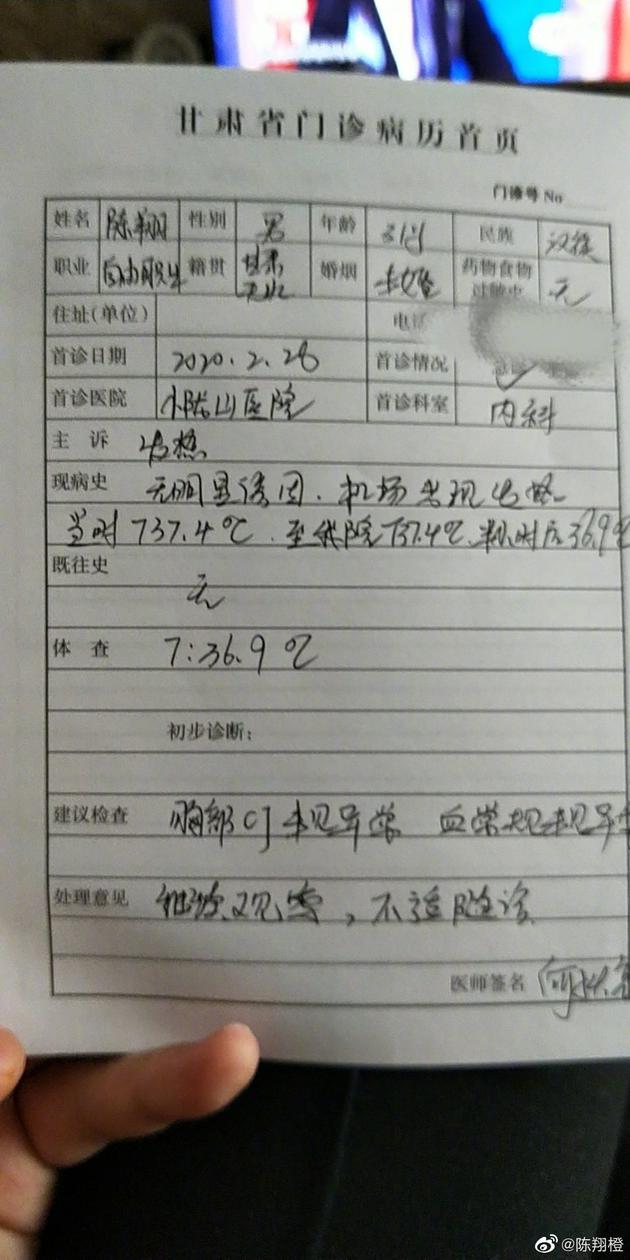 甘肃省门诊病历首页
门诊号 No
姓名 陈翔 性别 男 年龄 31岁 民族 汉族
职业 自由职业 籍贯 甘肃天水 婚烟 未婚 药物食物过敏史 无
住址(单位) 电话
首诊日期 2020.2.28 首诊情况 急诊
首诊医院 小陇山医院 首诊科室 内科
主诉 发热
现病史 无明显诱因.机场发现发热
当时T37.4℃.至我院T37.4℃.半小时后36.9℃
既往史
无
体查 T:36.9℃
初步诊断:
建议检查 胸部CT未见异常 血常规未见异常
处理意见 继续观察,不适随诊
医师签名
@陈翔橙